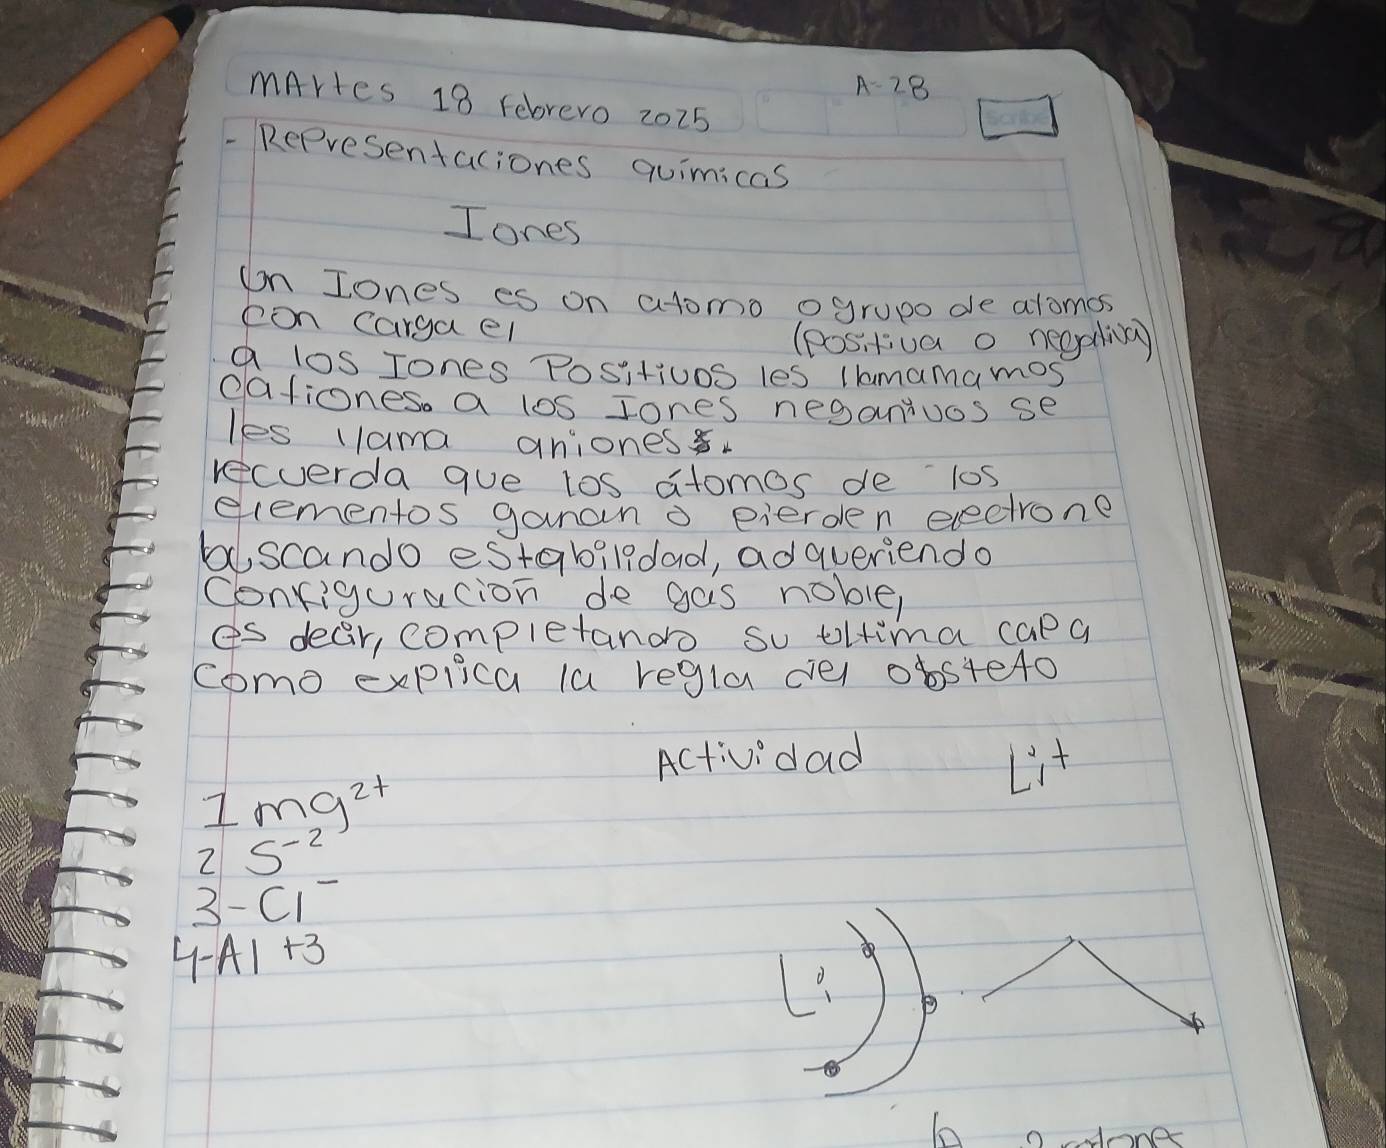 mArtes 18 Febrero 2025 A-28
Scribe
- Representaciones químicas
Iones
Un Iones es on atomo o grupo de atomos
con carga el (positiva o negativa)
a los Iones Positivos les llamamamos
cationes. a los Iones neganivos se
les llama aniones.
recuerda que los átomos de los
elementos ganan o pierden electrone
buscando estabilidad, adqueriendo
Configuración de gas noble,
es decir, completando su última capa
Como explica la regla del obsteto
Actividad Li+
1 mg²⁺
2 S⁻²
3-Cl⁻
4-Al +3
Li